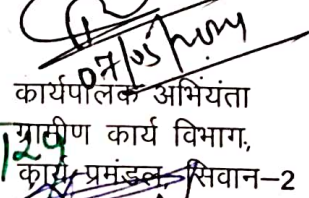 07/05/2024
कार्यपालक अभियंता
ग्रामीण कार्य विभाग,
कार्य प्रमंडल, सिवान-2